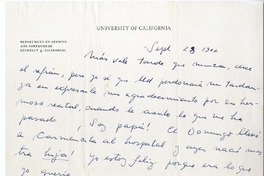 UNIVERSITY OF CALIFORNIA
DEPARTMENT OF SPANISH
AND PORTUGUESE
BERKELEY 4, CALIFORNIA
Sept 23
Más vale tarde que nunca, dice
el refrán, pero yo sé que Ud perdonará mi tardan-
za en expresarle mi agradecimiento por su her-
moso recital, cuando le cuente lo que me ha
pasado! Soy papá! El Domingo llevé
a Carmencita al hospital y ayer nació nues-
tra hija. Yo estoy feliz porque era lo que
yo quería